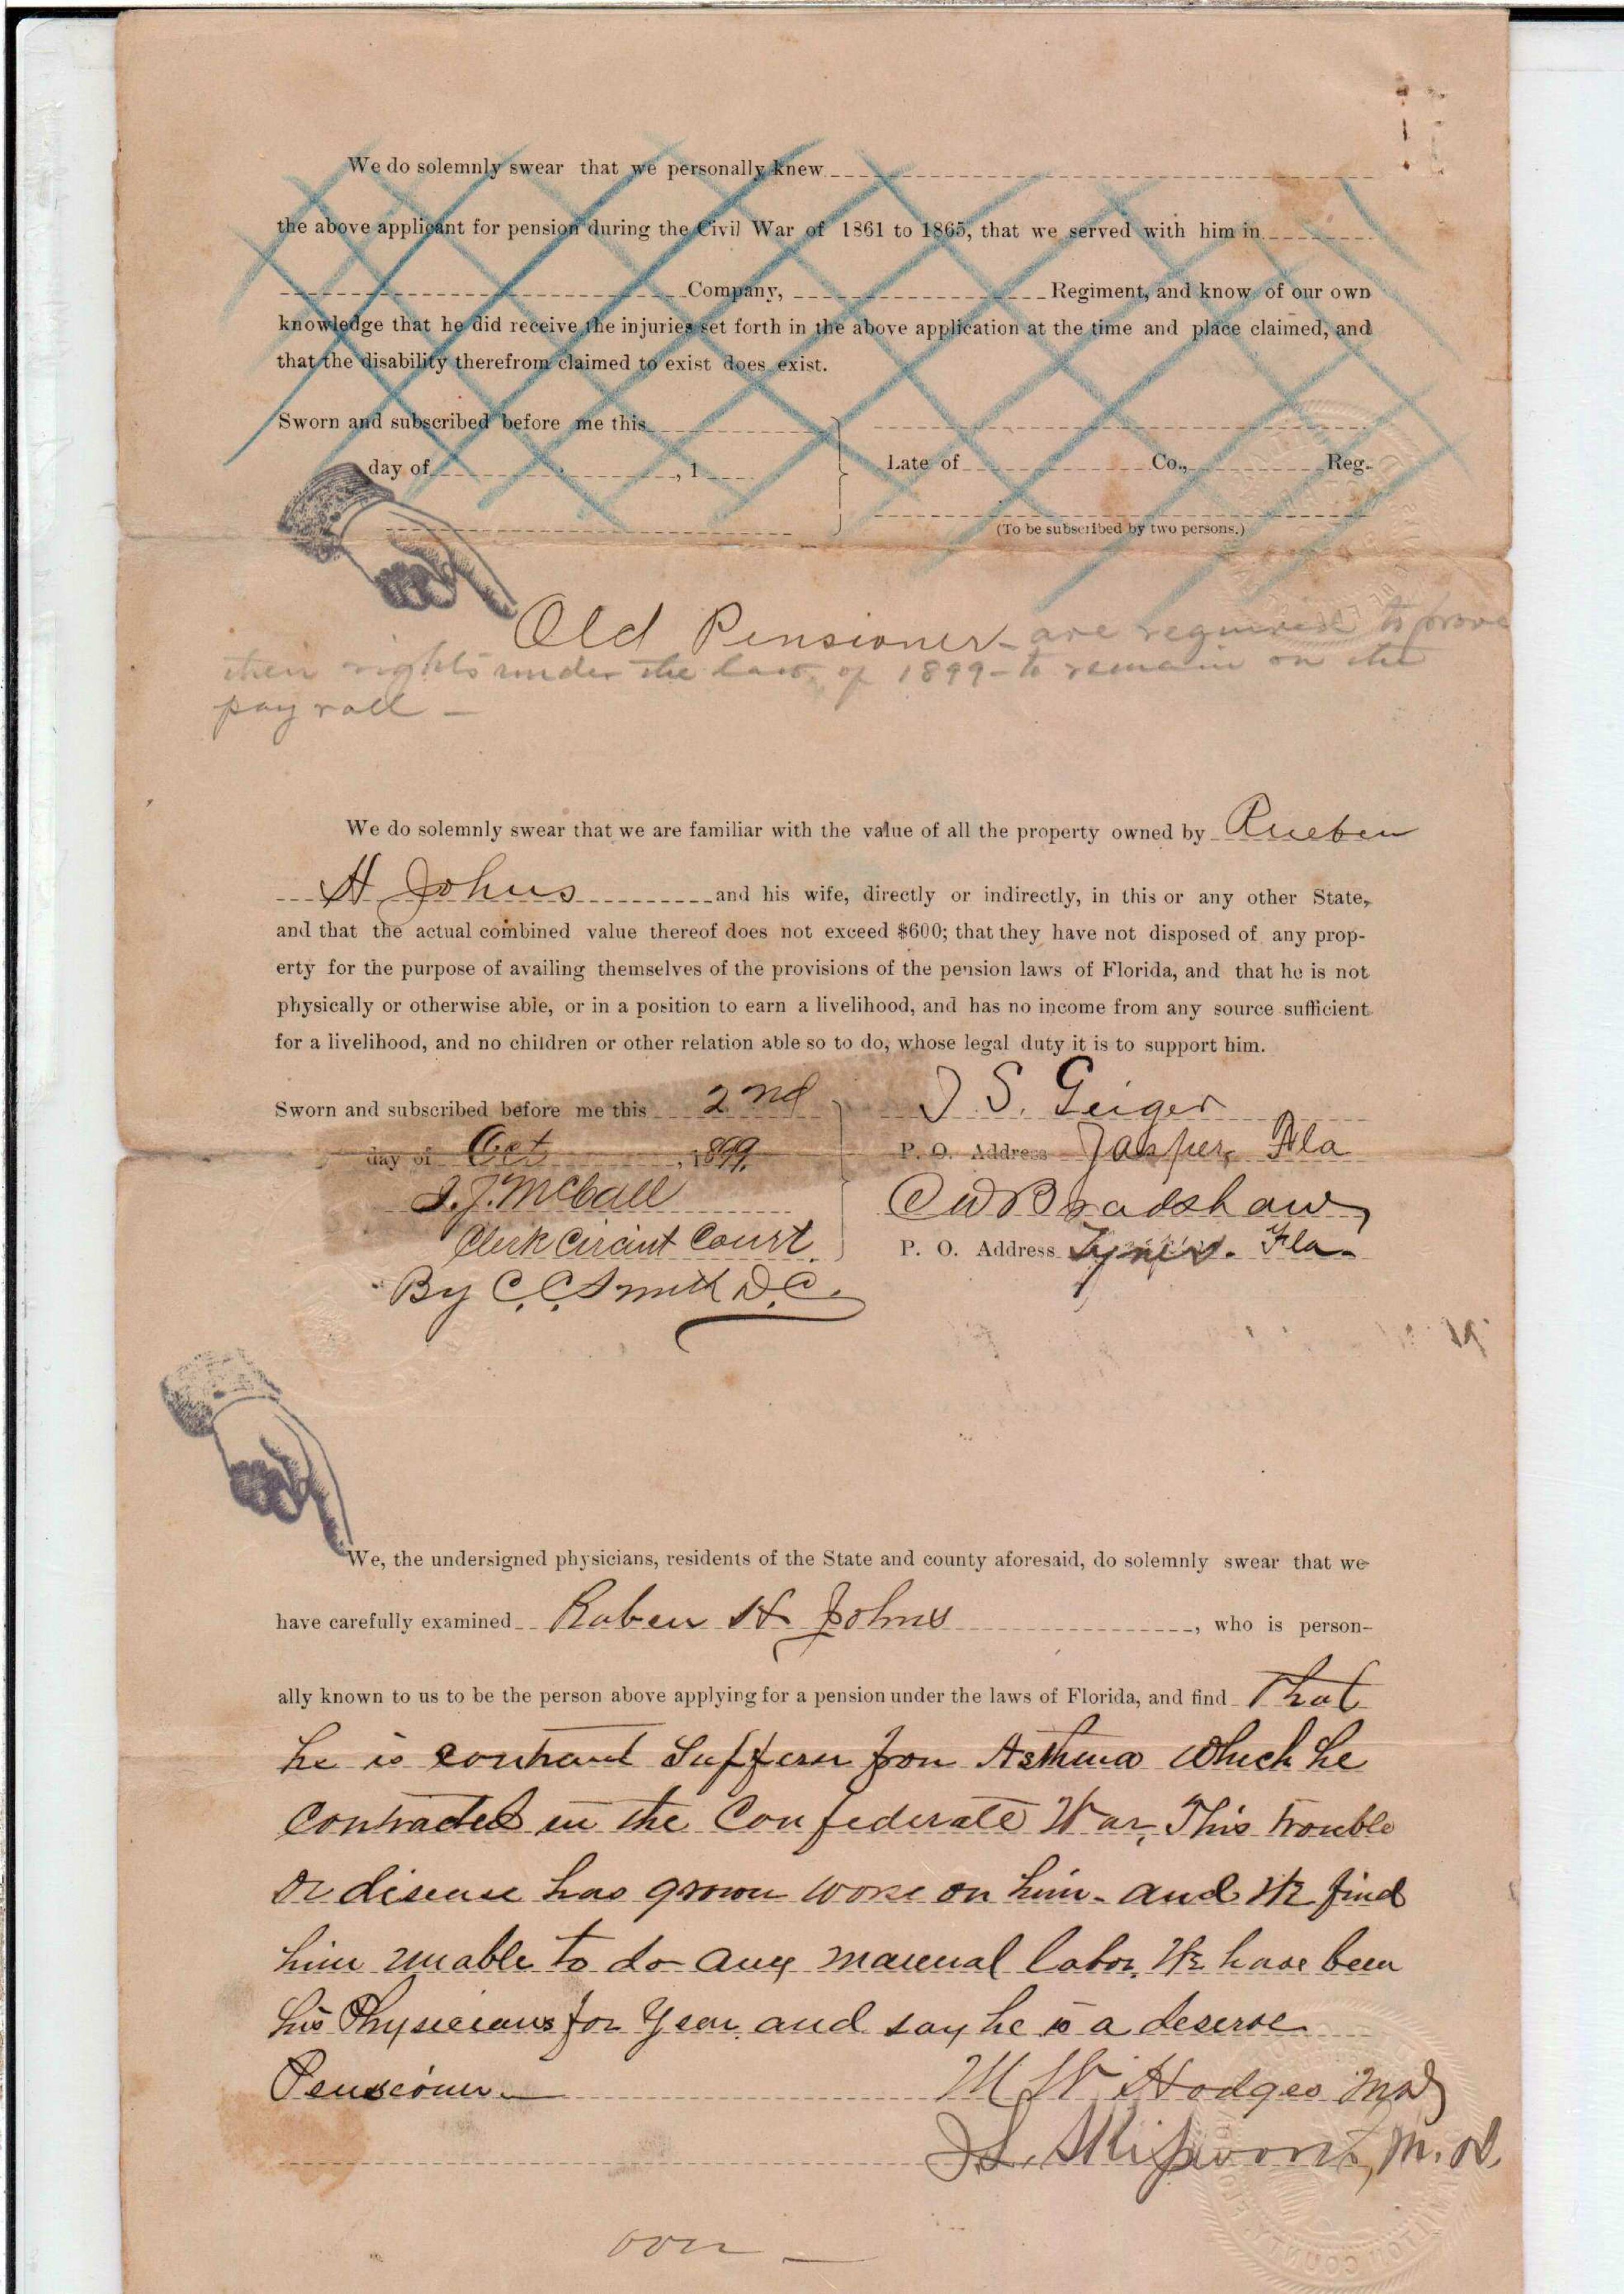 We do solemnly swear that we personally knew
the above applicant for pension during the Civil War of 1861 to 1865, that we served with him in
Company, Regiment, and know of our own
knowledge that he did receive the injuries set forth in the above application at the time and place claimed, and
that the disability therefrom claimed to exist does exist.
Sworn and subscribed before me this
day of , 1
Late of Co., Reg.
(To be subscribed by two persons.)
Old Pensioners are required to prove
their rights under the law of 1899 - to remain on the
pay roll -
We do solemnly swear that we are familiar with the value of all the property owned by Rueben
H Johns and his wife, directly or indirectly, in this or any other State,
and that the actual combined value thereof does not exceed $600; that they have not disposed of any prop-
erty for the purpose of availing themselves of the provisions of the pension laws of Florida, and that he is not
physically or otherwise able, or in a position to earn a livelihood, and has no income from any source sufficient
for a livelihood, and no children or other relation able so to do, whose legal duty it is to support him.
Sworn and subscribed before me this 2nd
day of Oct , 1899.
J. J. McCall
Clerk Circuit Court.
By C. C. Smith D.C.
J S. Geiger
P. O. Address Jasper, Fla
C W Bradshaw,
P. O. Address Fla.
We, the undersigned physicians, residents of the State and county aforesaid, do solemnly swear that we
have carefully examined Ruben H Johns , who is person-
ally known to us to be the person above applying for a pension under the laws of Florida, and find That
he is constant Suffern from Asthma which he
Contracted in the Confederate War, This trouble
or disease has grown worse on him - and We find
him unable to do any manual labor. We have been
his Physicians for Years and say he is a deserve
Pensioner -
M W Hodges MD
J. L. Skipworth, M. D.
HAMILTON COUNTY